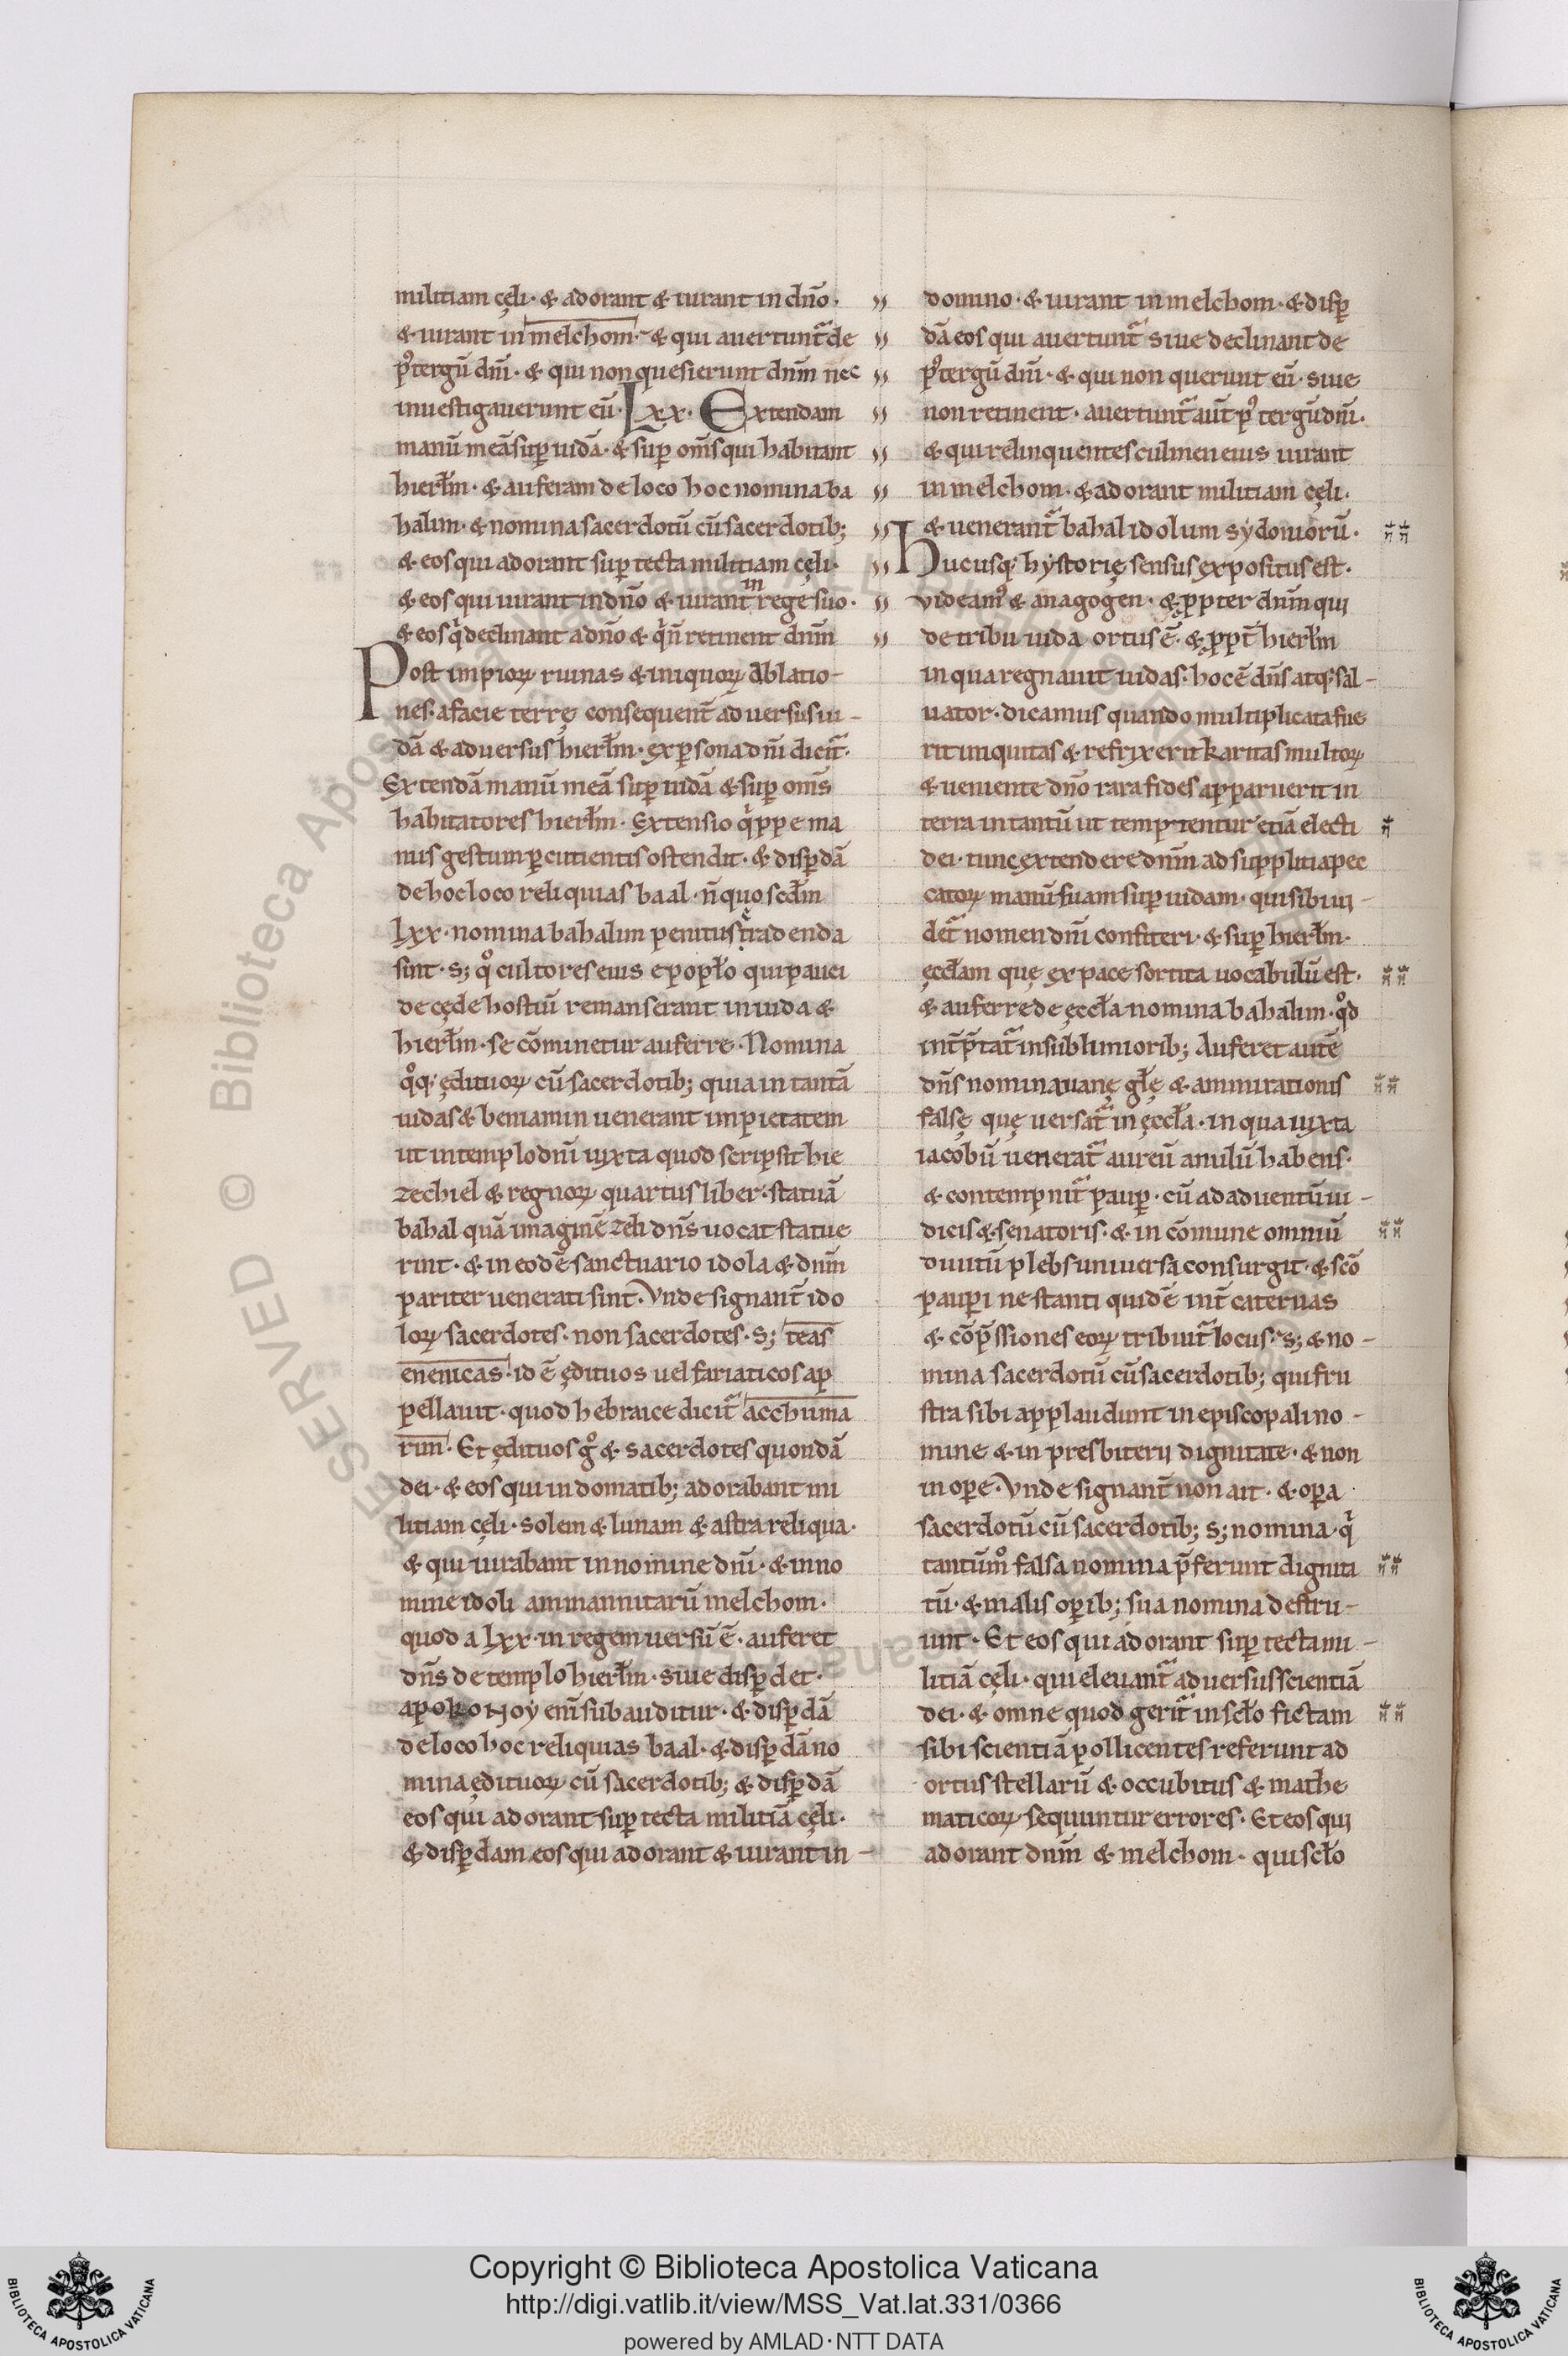 militiam cęli· & adorant & iurant in dn̄o·
& iurant in melchom· & qui auertunt᷑ de
p᷒ tergū dn̄i· & qui non quesierunt dn̄m nec
inuestigauerunt eū· Lxx· Extendam
manū meā sup̱ iudā· & sup̱ om̄s qui habitant
hierłm· & auferam de loco hoc nomina ba
halim· & nomina sacerdotū cū sacerdotib;
& eos qui adorant sup̱ tecta militiam cęli·
& eos qui iurant in dn̄o & iurant in rege suo·
& eos q̇ declinant a dn̄o & q̇ n̄ retinent dn̄m
Post impioꝝ ruinas & iniquoꝝ ablatio-
nes· a facie terrę consequent̄ aduersus iu-
dā & aduersus hierłm· ex p̱sona dn̄i dicit᷑·
Extendā manū meā sup̱ iudā & sup̱ om̄s
habitatores hierłm· Extensio q̇ppe ma
nus gestum p̱cutientis ostendit· & disp̱dā
de hoc loco reliquias baal· n̄ quo scdm̄
Lxx· nomina bahalim penitus tradenda
sint· s; qͦ cultores eius e popło qui pauci
de cęde hostiū remanserant in iuda &
hierłm· se cōminetur auferre· Nomina
qͦq; ędituoꝝ cū sacerdotib; quia in tantā
iudas & beniamin uenerant impietatem
ut in templo dn̄i iuxta quod scripsit hie
zechiel & regnoꝝ quartus liber· statuā
bahal quā imaginē zeli dn̄s uocat statue
rint· & in eodē sanctuario idola & dn̄m
pariter uenerati sint· Vnde signant̄ ido
loꝝ sacerdotes· non sacerdotes· s; teas
enenicas· id ē ędituos uel fariaticos ap
pellauit· quod hebraice dicit᷑ acchuma
rim· Et ędituos gͦ & sacerdotes quondā
dei· & eos qui in domatib; adorabant mi
litiam cęli· solem & lunam & astra reliqua·
& qui iurabant in nomine dn̄i· & in no
mine idoli ammannitarū melchom·
quod a Lxx· in regem uersū ē· auferet
dn̄s de templo hierłm· siue disp̱det·
enī subauditur· & disp̱dā
de loco hoc reliquias baal· & disp̱dā no
mina ędituoꝝ cū sacerdotib; & disp̱dā
eos qui adorant sup̱ tecta militiā cęli·
& disp̱dam eos qui adorant & iurant in-
domino· & iurant in melchom· & disp̱
dā eos qui auertunt᷑ siue declinant de
p᷒ tergū dn̄i· & qui non querunt eū· siue
non retinent· auertunt᷑ aūt p᷒ tergū dn̄i·
& qui relinquentes culmen eius iurant
in melchom· & adorant militiam cęli·
& uenerant᷑ bahal idolum sydoniorū·
Hucusq; hystorię sensus expositus est·
videam᷒ & anagogen· & ꝓpter dn̄m qui
de tribu iuda ortus ē· & ꝓpt̄ hierłm
in qua regnauit iudas· hoc ē dn̄s atq; sal-
uator· dicamus quando multiplicata fue
rit iniquitas & refrixerit karitas multoꝝ
& ueniente dn̄o rara fides apparuerit in
terra in tantū ut temptentur etiā electi
dei· tunc extendere dn̄m ad supplitia pec
catoꝝ manū suam sup̱ iudam· qui sibi ui-
det᷑ nomen dn̄i confiteri· & sup̱ hierłm·
ęcclam quę ex pace sortita uocabulū est·
& auferre de ęccła nomina bahalim· qͦd
int̄p̄tat᷑ in sublimiorib; Auferet autē
dn̄s nomina uanę głę & ammirationis
falsę quę uersat᷑ in ęccła· in qua iuxta
iacobū uenerat᷑ aureū anulū habens·
& contempnit᷑ paup̱· cū ad aduentū iu-
dicis & senatoris· & in cōmune omniū
diuitū plebs uniuersa consurgit· & scō
paup̱i ne stanti quidē int̄ cateruas
& cōp̄ssiones eoꝝ tribuit᷑ locus· s; & no-
mina sacerdotū cū sacerdotib; qui fru
stra sibi applaudunt in episcopali no-
mine & in presbiterii dignitate· & non
in ope̱· Vnde signant̄ non ait· & op̱a
sacerdotū cū sacerdotib; s; nomina· q̇
tantūmͦ falsa nomina p̄ferunt dignita
tū· & malis op̱ib; sua nomina destru-
unt· Et eos qui adorant sup̱ tecta mi-
litiā cęli· qui eleuant᷑ aduersus scientiā
dei· & omne quod gerit᷑ in scło fictam
sibi scientiā pollicentes referunt ad
ortus stellarū & occubitus & mathe
maticoꝝ sequuntur errores· Et eos qui
adorant dn̄m & melchom· qui scło
Copyright © Biblioteca Apostolica Vaticana
http://digi.vatlib.it/view/MSS_Vat.lat.331/0366
powered by AMLAD·NTT DATA